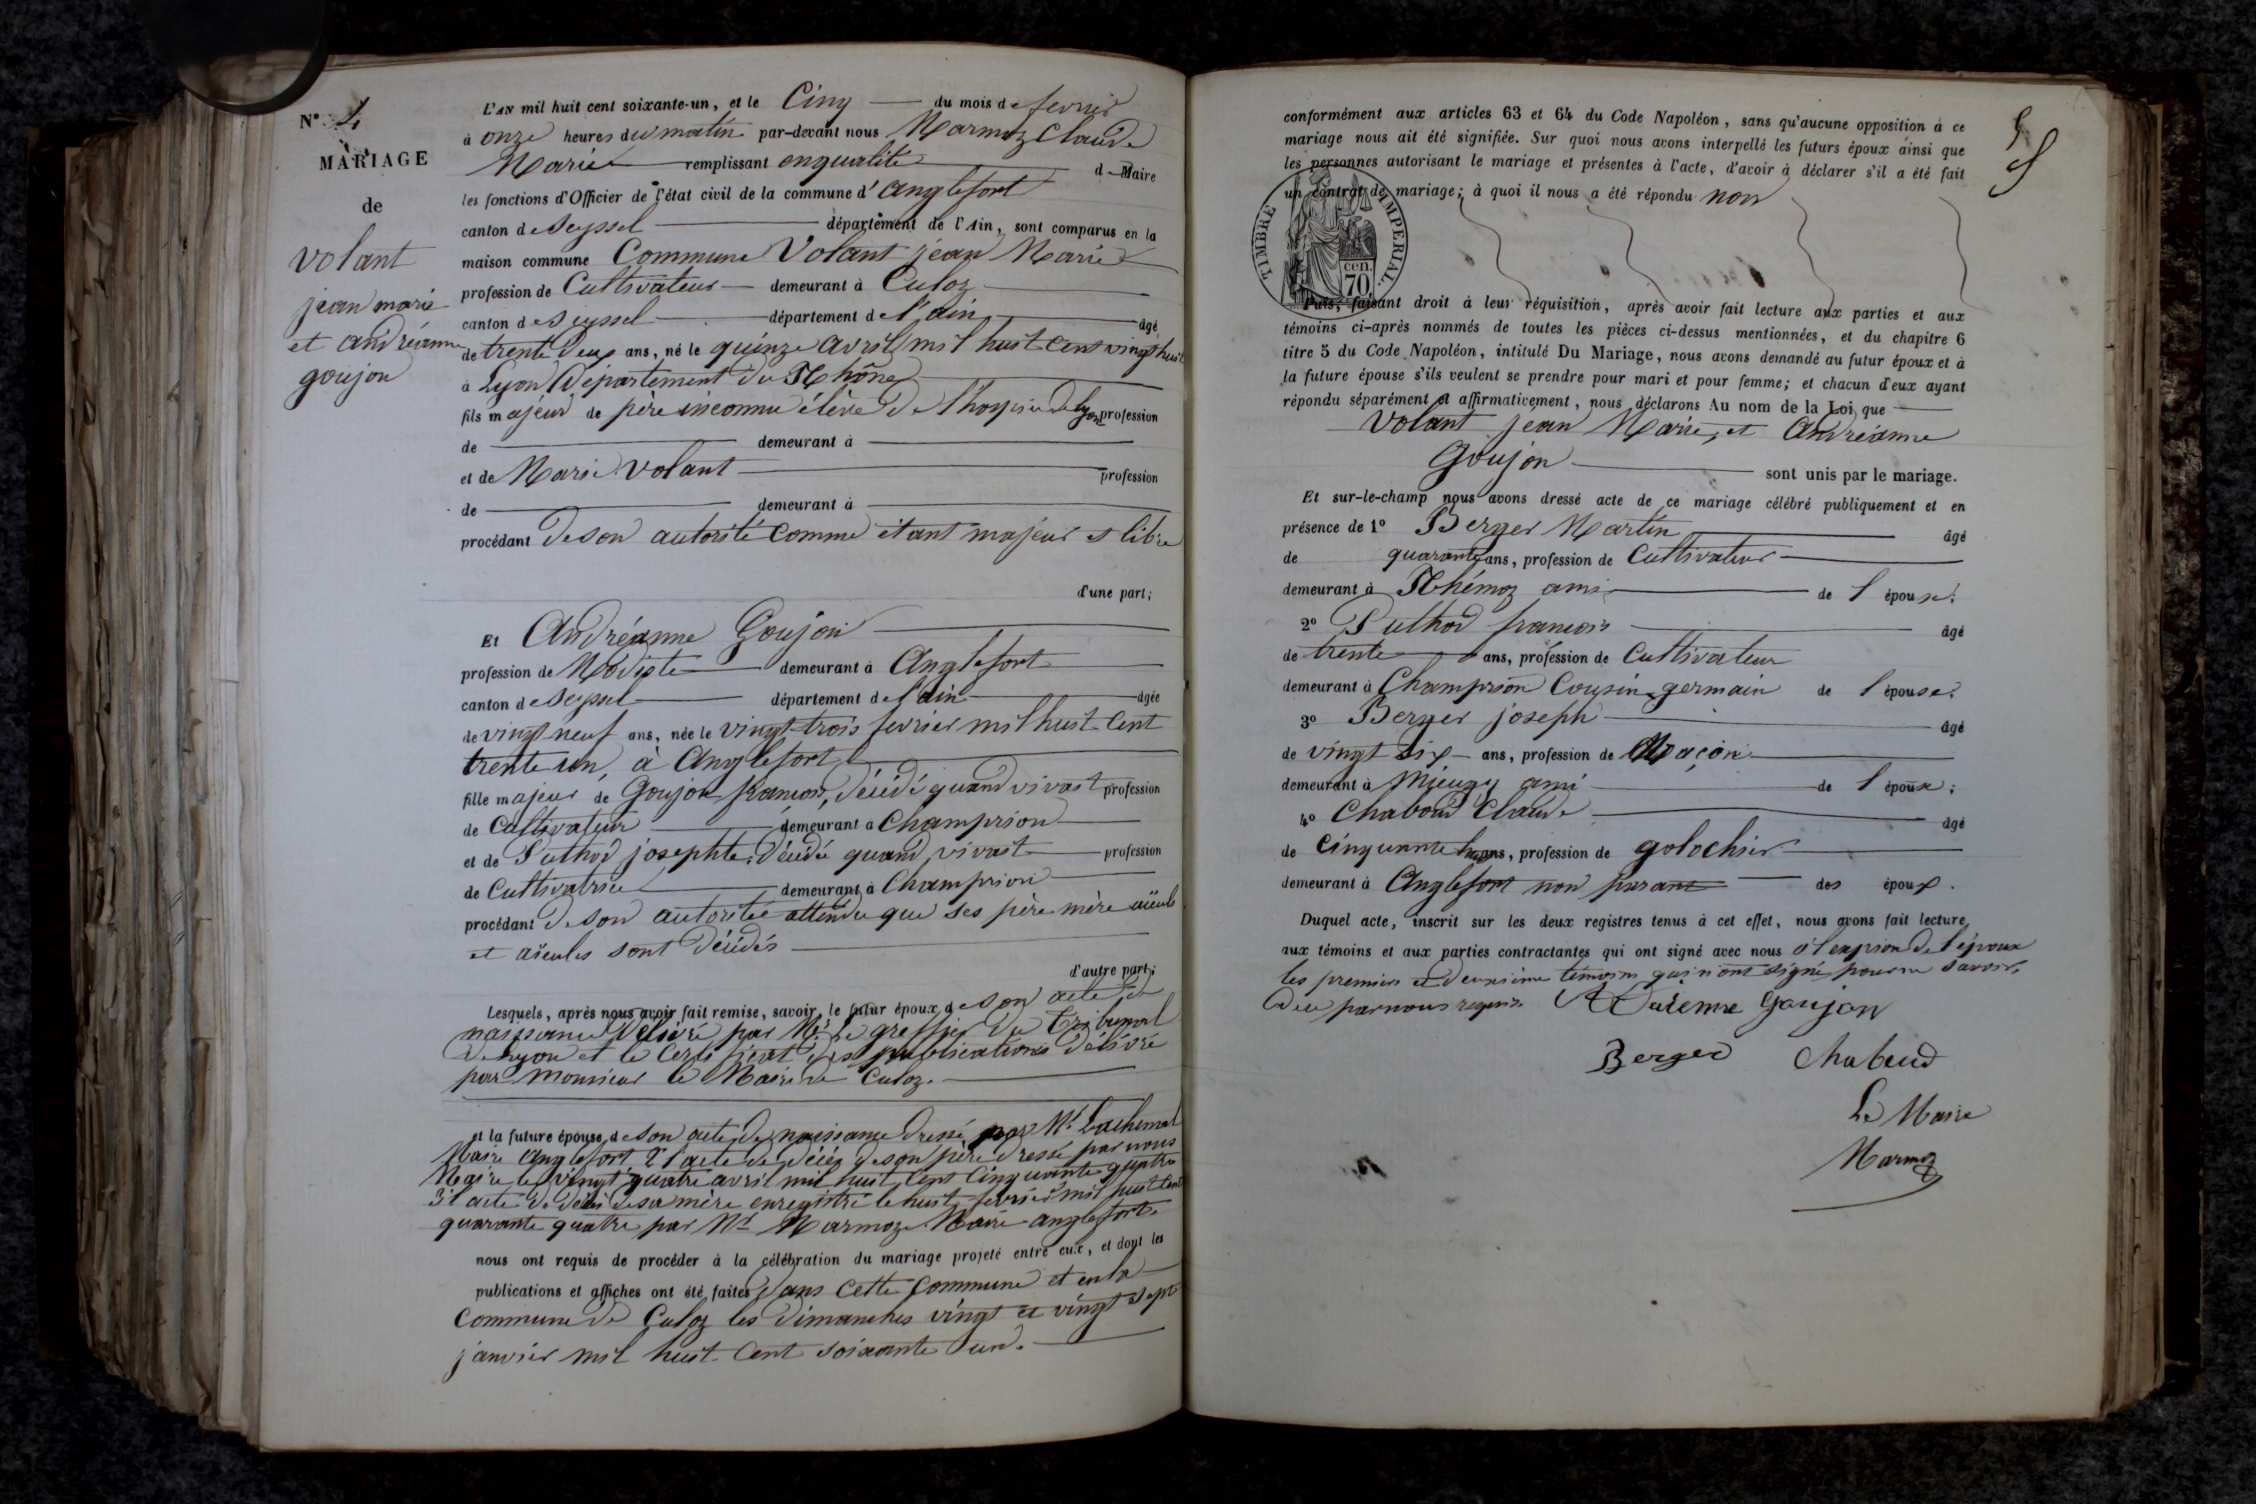 N° 4
MARIAGE
de
volant
jean marie
et andréanne
goujon
L'AN mil huit cent soixante-un, et le Cinq du mois de fevrier
à onze heures du matin par-devant nous Marmoz Claude
Marie remplissant enqualité de Maire
les fonctions d'Officier de l'état civil de la commune d'anglefort
canton de Seyssel département de l'Ain, sont comparus en la
maison commune Commune Volant jean Marie
profession de Cultivateur demeurant à Culoz
canton de Seyssel département de l'ain âgé
de trente deux ans, né le quinze avril mil huit cent vingt huit
à Lyon Département du Rhône
fils majeur de père inconnu élève de l'hospice de lyon profession
de demeurant à
et de Marie Volant profession
de demeurant à
procédant de son autorité comme étant majeur et libre
d'une part;
Et Andréanne Goujon
profession de Modiste demeurant à Anglefort
canton de Seyssel département de l'ain âgée
de vingt neuf ans, née le vingt-trois fevrier mil huit cent
trente un, à Anglefort
fille majeur de Goujon francois, décédé quand vivait profession
de Cultivateur demeurant a Champrion
et de Puthod josephte, décédée quand vivait profession
de Cultivatrice demeurant à Champrion
procédant de son autorité attendu que ses père mère aïeuls
et aïeules sont décédés
d'autre part;
Lesquels, après nous avoir fait remise, savoir, le futur époux de son acte de
naissance délivré par Mr. le greffier du Tribunal
de Lyon et le certificat des publications délivré
par monsieur le Maire de Culoz.
et la future épouse de son acte de naissance dressé par Mr
Maire Anglefort 2° l'acte de décès de son père dressé par nous
Maire le vingt quatre avril mil huit cent cinquante quatre
3° l'acte de décès de sa mère enregistré le huit fevrier mil huit cent
quarante quatre par Mr Marmoz Maire anglefort.
nous ont requis de procéder à la célébration du mariage projeté entre eux, et dont les
publications et affiches ont été faites dans cette commune et en la
commune de Culoz les dimanches vingt et vingt sept
janvier mil huit cent soixante un.
5
conformément aux articles 63 et 64 du Code Napoléon, sans qu'aucune opposition à ce
mariage nous ait été signifiée. Sur quoi nous avons interpellé les futurs époux ainsi que
les personnes autorisant le mariage et présentes à l'acte, d'avoir à déclarer s'il a été fait
un contrat de mariage; à quoi il nous a été répondu non
TIMBRE IMPERIAL.
70 cen.
Puis, faisant droit à leur réquisition, après avoir fait lecture aux parties et aux
témoins ci-après nommés de toutes les pièces ci-dessus mentionnées, et du chapitre 6
titre 5 du Code Napoléon, intitulé Du Mariage, nous avons demandé au futur époux et à
la future épouse s'ils veulent se prendre pour mari et pour femme; et chacun d'eux ayant
répondu séparément et affirmativement, nous déclarons Au nom de la Loi, que
Volant jean Marie, et Andréanne
Goujon sont unis par le mariage.
Et sur-le-champ nous avons dressé acte de ce mariage célébré publiquement et en
présence de 1° Berger Martin âgé
de quarante ans, profession de Cultivateur
demeurant à Rhémoz ami de l'épouse.
2° Puthod francois âgé
de trente ans, profession de Cultivateur
demeurant à Champrion Cousin germain de l'épouse.
3° Berger joseph âgé
de vingt six ans, profession de Maçon
demeurant à Mieugy ami de l'épouse;
4° Chaboud Claude âgé
de cinquante ans, profession de golochier
demeurant à Anglefort non parant des époux.
Duquel acte, inscrit sur les deux registres tenus à cet effet, nous avons fait lecture
aux témoins et aux parties contractantes qui ont signé avec nous de l'époux
les premier et deuxieme témoins qui n'ont signé pour ne savoir
de ce par nous requis. Goujon
Berger Chaboud
Le Maire
Marmoz